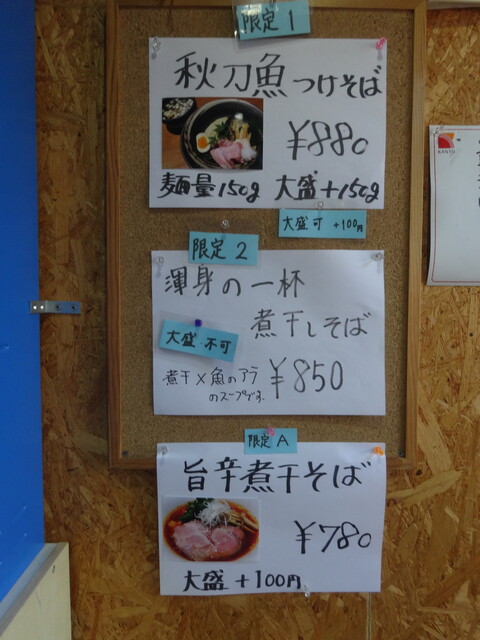 限定1
秋刀魚つけそば
¥880
麺量150g 大盛+150g
大盛可 +100円
限定2
渾身の一杯
煮干しそば
大盛 不可
煮干×魚のアラ
のスープです.
¥850
限定A
旨辛煮干そば
¥780
大盛 +100円